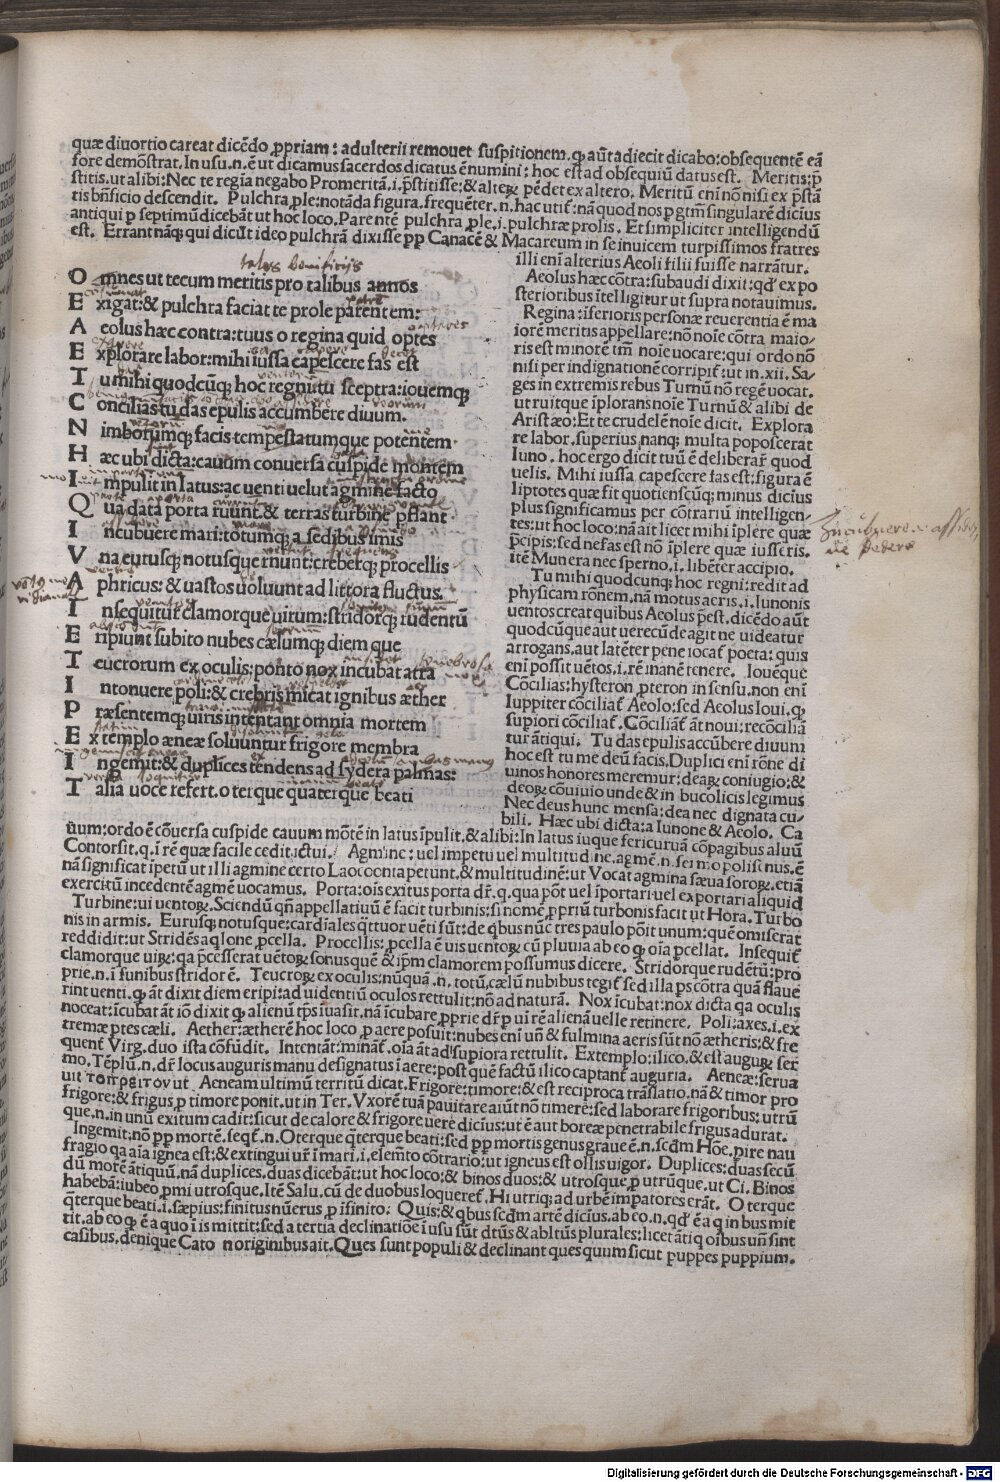 quæ diuortio careat dicēdo ꝓpriam: adulterii remouet suspitionem. ꝙ aūt adiecit dicabo: obsequentē eā
fore demōstrat. In usu .n. ē ut dicamus sacerdos dicatus ē numini: hoc est ad obsequiū datus est. Meritis: p̄
stitis. ut alibi: Nec te regīa negabo Promeritā .i. p̄stitisse: & alteꝝ pēdet ex altero. Meritū enī nō nisi ex p̄stā
tis bn̄ficio descendit. Pulchra ꝓle: notāda figura. frequēter .n. hac utit̄: nā quod nos p gtm̄ singularē dicius
antiqui p septimū dicebāt ut hoc loco. Parentē pulchra ꝓle .i. pulchræ prolis. Et simpliciter intelligendū
est. Errant nāqꝫ qui dicūt ideo pulchrā dixisse ꝓp Canacē & Macareum in se inuicem turpissimos fratres
illi eni alterius Aeoli filii fuisse narrātur.
talus bonificijs
O mnes ut tecum meritis pro talibus annos
E xigat: & pulchra faciat te prole parentem:
A eolus hæc contra: tuus o regina quid optes
E xplorare labor: mihi iussa capescere fas est
T u mihi quodcūqꝫ hoc regni: tu sceptra: iouemqꝫ
C oncilias tu das epulis accumbere diuum.
N imborumqꝫ facis tempestatumque potentem
H æc ubi dicta: cauum conuersa cuspide montem
I mpulit in latus: ac uenti uelut agmine facto
Q ua data porta ruunt. & terras turbine pflant
I ncubuere mari: totumqꝫ a sedibus imis
V na eurusqꝫ notusque ruunt: creberqꝫ procellis
A phricus: & uastos uoluunt ad littora fluctus.
I nsequitur clamorque uirum: stridorqꝫ rudentū
E ripiunt subito nubes cælumqꝫ diem que
T eucrorum ex oculis: ponto nox incubat atra
I ntonuere poli: & crebris micat ignibus æther
P ræsentemqꝫ uiris intentant omnia mortem
E x templo æneæ soluuntur frigore membra
I ngemit: & duplices tendens ad sydera palmas:
T alia uoce refert. o terque quaterque beati
Aeolus hæc cōtra: subaudi dixit: qd̄ ex po
sterioribus ītelligitur ut supra notauimus.
Regina: īferioris personæ reuerentia ē ma
iorē meritis appellare: nō noīe cōtra maio/
ris est minorē tm̄ noīe uocare: qui ordo nō
nisi per indignationē corripit̄: ut in .xii. Sa/
ges in extremis rebus Turnū nō regē uocat.
ut ruitque īplorans noīe Turnū & alibi de
Aristæo: Et te crudelē noīe dicit. Explora
re labor. superius nanqꝫ multa poposcerat
Iuno. hoc ergo dicit tuū ē deliberar̄ quod
uelis. Mihi iussa capescere fas est: figura ē
liptotes quæ fit quotienscūqꝫ minus dicius
plus significamus per cōtrariū intelligen/
tes: ut hoc loco: nā ait licet mihi īplere quæ
p̄cipis: sed nefas est nō īplere quæ iusseris.
itē Munera nec sperno .i. libēter accipio.
Tu mihi quodcunqꝫ hoc regni: redit ad
physicam rōnem. nā motus aeris .i. Iunonis
uentos creat quibus Aeolus p̄est. dicēdo aūt
quodcūque aut uerecūde agit ne uideatur
arrogans. aut latēter pene iocat̄ poeta: quis
enī possit uētos .i. rē inanē tenere. Iouēque
Cōcilias: hysteron ꝓteron in sensu. non enī
Iuppiter cōciliat̄ Aeolo: sed Aeolus Ioui. ꝙ
supiori cōciliat̄. Cōciliāt̄ āt noui: recōciliā
tur ātiqui. Tu das epulis accūbere diuum
hoc est tu me deū facis. Duplici eni rōne di
uinos honores meremur: deaꝝ coniugio: &
deoꝝ cōuiuio unde & in bucolicis legimus
Nec deus hunc mensa: dea nec dignata cu/
bili. Hæc ubi dicta: a Iunone & Aeolo. Ca
ūum: ordo ē cōuersa cuspide cauum mōtē in latus īpulit. & alibi: In latus iuque feri curuā cōpagibus aluū
Contorsit. q. i rē quæ facile cedit ictui. Agmine: uel impetu uel multitudine. agmē .n. sermo polisēnus. ē
nā significat ipetū ut illi agmine certo Laocoonta petunt. & multitudinē: ut Vocat agmina sæua soroꝝ. etiā
exercitū incedentē agmē uocamus. Porta: oīs exitus porta dr̄. q. qua pōt uel īportari uel exportari aliquid
Turbine: ui uentoꝝ. Sciendū qn̄ appellatiuū ē facit turbinis: si nomē ꝓpriū turbonis facit ut Hora. Turbo
nis in armis. Eurusqꝫ notusque: cardiales qttuor uēti sūt: de qbus nūc tres paulo pōit unum: quē omiserat
reddidit: ut Stridēs aqlone ꝓcella. Procellis: ꝓcella ē uis uentoꝝ cū pluuia ab eo ꝙ oīa ꝓcellat. Insequit̄
clamorque uiꝝ: qa p̄cesserat uētoꝝ sonus quē & ip̄m clamorem possumus dicere. Stridorque rudētū: pro
prie .n. i funibus stridor ē. Teucroꝝ ex oculis: nūquā .n. totū cælū nubibus tegit̄ sed illa ps cōtra quā flaue
rint uenti. ꝙ āt dixit diem eripi: ad uidentiū oculos rettulit: nō ad naturā. Nox īcubat: nox dicta qa oculis
noceat: īcubat āt iō dixit ꝙ alienū tp̄s iuasit. nā īcubare ꝓprie dr̄ p uī rē alienā uelle retinere. Poli: axes .i. ex
tremæ ptes cæli. Aether: ætherē hoc loco ꝓ aere posuit: nubes enī uñ & fulmina aeris sūt nō ætheris: & fre
quent̄ Virg. duo ista cōfūdit. Intentāt: minat̄. oīa āt ad supiora rettulit. Extemplo: ilico. & est auguꝝ ser
mo. Tēplū .n. dr̄ locus auguris manu designatus ī aere: post quē factū ilico captant̄ auguria. Aeneæ: serua
uit τοπρεπον ut Aeneam ultimū territū dicat. Frigore: timore: & est reciproca trāslatio. nā & timor pro
frigore: & frigus ꝓ timore ponit. ut in Ter. Vxorē tuā pauitare aiūt nō timere: sed laborare frigoribus: utrū
que .n. in unū exitum cadit: sicut de calore & frigore uere dicius: ut ē aut boreæ penetrabile frigus adurat.
Ingemit: nō ꝓp mortē. seqt̄ .n. O terque qterque beati: sed ꝓp mortis genus graue ē .n. scdm Hōe. pire nau
fragio qa aīa ignea est: & extingui uir̄ ī mari .i. elemēto cōtrario: ut igneus est ollis uigor. Duplices: duas secū
dū morē ātiquū. nā duplices. duas dicebāt: ut hoc loco: & binos duos: & utrosque ꝓ utrūque. ut Ci. Binos
habebā: iubeo ꝓmi utrosque. Itē Salu. cū de duobus loqueret̄. Hi utriqꝫ ad urbē impatores erāt. O terque
qterque beati .i. sæpius: finitus nūerus ꝓ īfinito: Quis: & qbus scdm artē dicius. ab eo .n. qd̄ ē a q in bus mit
tit. ab eo ꝙ ē a quo ī is mittit: sed a tertia declinatiōe ī usu sūt dtūs & abltūs plurales: licet āti q oībus uñ sint
casibus. denique Cato n originibus ait. Ques sunt populi & declinant ques quum sicut puppes puppium.
Digitalisierung gefördert durch die Deutsche Forschungsgemeinschaft - DFG